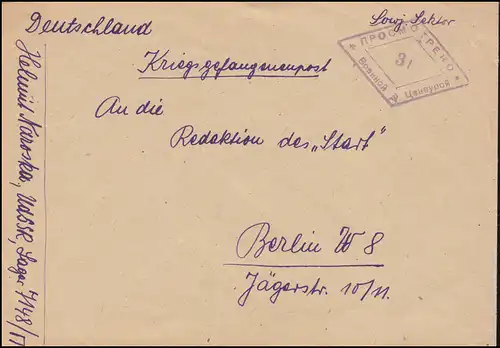 Deutschland
Sowj. Sektor
* ПРОСМОТРЕНО *
31
Военной Цензурой
Kriegsgefangenenpost
An die
Redaktion des „Start"
Berlin W. 8
Jägerstr. 10/11.
Helmut Naroska, UdSSR, Lager 7148/